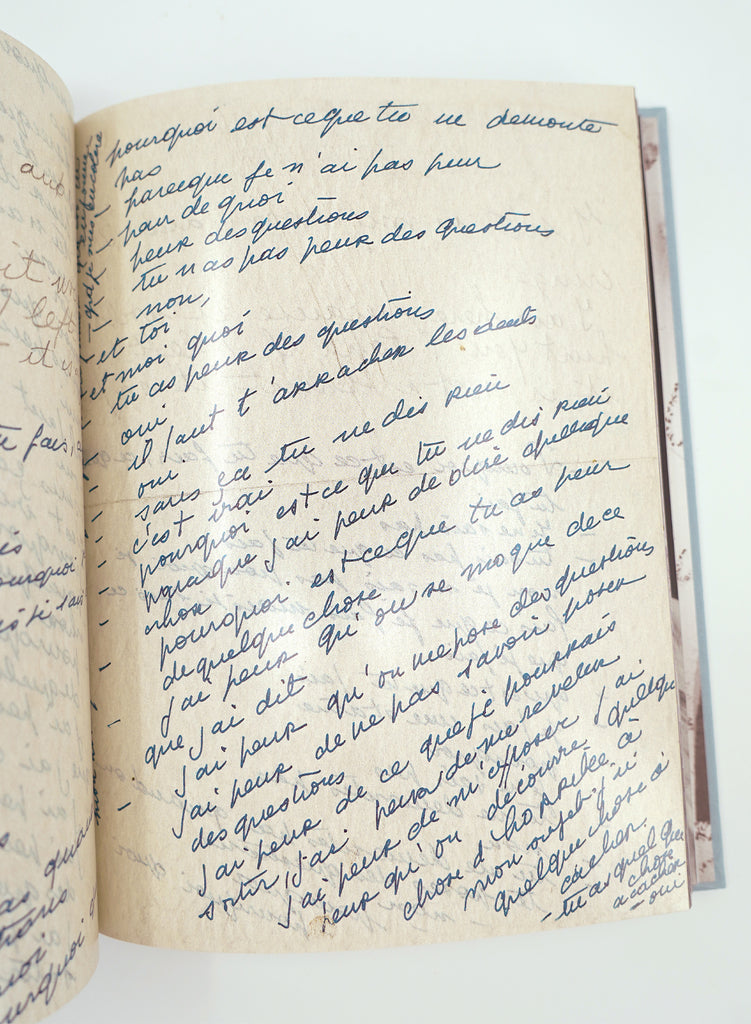 pourquoi est-ce que tu ne demonte
pas
- parceque je n'ai pas peur
- peur de quoi
- peur des questions
- tu n as pas peur des questions
- non,
- et toi
- et moi quoi
- tu as peur des questions
- oui
- il faut t'arracher les dents
- oui
- sans ça tu ne dis rien
- c'est vrai
- pourquoi est-ce que tu ne dis rien
- parceque j'ai peur de dire quelque
chose
- pourquoi est-ce que tu as peur
de quelque chose
- j'ai peur qu'on se moque de ce
que j'ai dit
j'ai peur qu'on me pose des questions
j'ai peur de ne pas savoir poser
des questions
j'ai peur de ce que je pourrais
sortir, j'ai peur de me reveler
j'ai peur de m'exposer j'ai
peur qu'on découvre quelque
chose d'horrible à
mon sujet, j'ai
quelque chose à
cacher.
- tu as quelque
chose
a cacher
- oui
- que je suis encolère
auto
it w
left
- it i
te fais,
is
ourquoi
as qua
trans
oi
urquoi